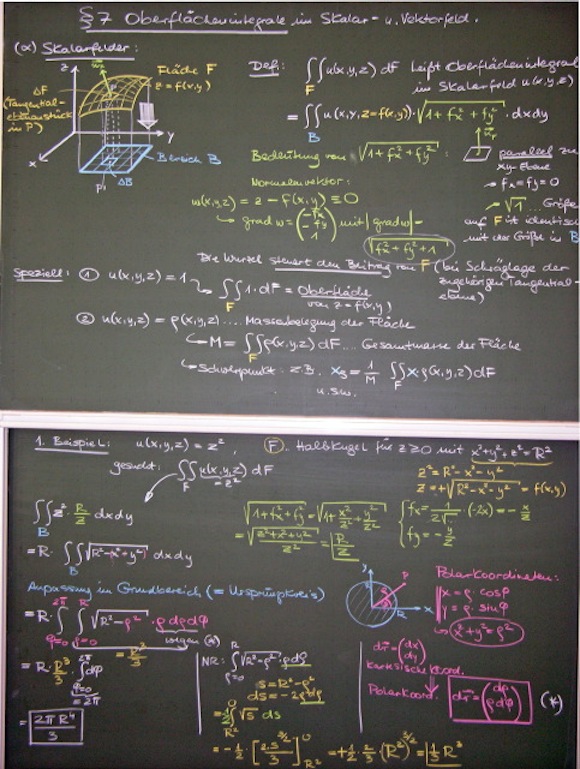 §7 Oberflächenintegrale im Skalar- u. Vektorfeld.
(α) Skalarfelder:
z
Fläche F
z=f(x,y)
ΔF
(Tangential-
ebenenstück
in P)
P
y
x
Bereich B
P'
ΔB
Def.: ∬_F u(x,y,z) dF heißt Oberflächenintegral
im Skalarfeld u(x,y,z)
= ∬_B u(x,y,z=f(x,y)) · √(1+fx²+fy²) · dxdy
Bedeutung von √(1+fx²+fy²) :
parallel zu
xy-Ebene
→ fx=fy=0
→ √1 ... Größe
auf F ist identisch
mit der Größe in B
Normalenvektor:
w(x,y,z) = z - f(x,y) ≡ 0
→ grad w = (-fx, -fy, 1) mit |grad w| =
√(fx²+fy²+1)
Die Wurzel steuert den Beitrag von F (bei Schräglage der
zugehörigen Tangential-
ebene)
Speziell: ① u(x,y,z) = 1
→ ∬_F 1·dF = Oberfläche
von z=f(x,y)
② u(x,y,z) = ρ(x,y,z) .... Massenbelegung der Fläche
→ M = ∬_F ρ(x,y,z) dF .... Gesamtmasse der Fläche
→ Schwerpunkt: z.B. xs = 1/M ∬_F x·ρ(x,y,z) dF
u.s.w.
1. Beispiel: u(x,y,z) = z², F.. Halbkugel für z≥0 mit x²+y²+z²=R²
gesucht: ∬_F u(x,y,z) dF
= z²
z²=R²-x²-y²
z=+√(R²-x²-y²) = f(x,y)
∬_B z² · R/z dxdy
√(1+fx²+fy²) = √(1+x²/z²+y²/z²)
= √((z²+x²+y²)/z²) = R/z
fx = 1/(2√) · (-2x) = -x/z
fy = -y/z
= R · ∬_B √(R²-x²-y²) dxdy
Anpassung im Grundbereich (= Ursprungskreis)
y
R
x
Polarkoordinaten:
x = ρ · cosφ
y = ρ · sinφ
→ x²+y²=ρ²
= R · ∫_{φ=0}^{2π} ∫_{ρ=0}^{R} √(R²-ρ²) · ρ dρ dφ
wegen (*)
= R³/3
= R · R³/3 · ∫_{φ=0}^{2π} dφ
= 2π
= 2πR⁴/3
NR: ∫_{ρ=0}^{R} √(R²-ρ²) · ρ dρ
s = R²-ρ²
ds = -2ρ dρ
= -1/2 ∫_{R²}^{0} √s ds
= -1/2 · [2·s^{3/2}/3]_{R²}^{0} = +1/2 · 2/3 · (R²)^{3/2} = 1/3 R³
dr = (dx, dy)
kartesische Koord.
Polarkoord. dr = (dρ, ρdφ) (*)